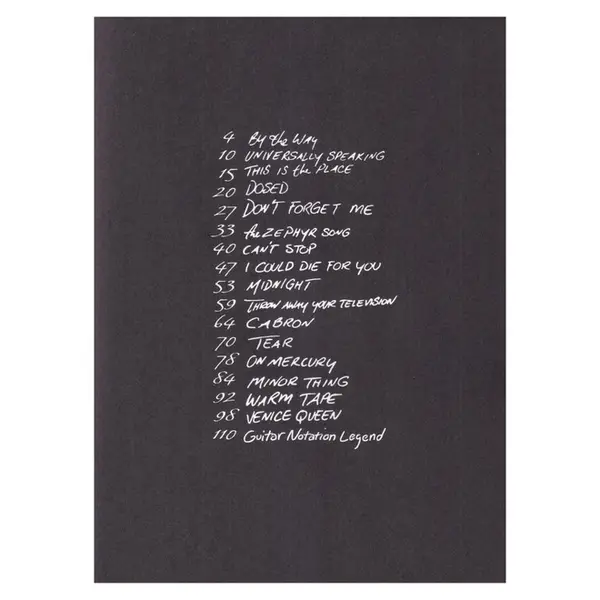 4 By the Way
10 UNIVERSALLY SPEAKING
15 THIS IS the PLACE
20 DOSED
27 DON'T FORGET ME
33 the ZEPHYR SONG
40 CAN'T STOP
47 I COULD DIE FOR YOU
53 MIDNIGHT
59 THROW AWAY YOUR TELEVISION
64 CABRON
70 TEAR
78 ON MERCURY
84 MINOR THING
92 WARM TAPE
98 VENICE QUEEN
110 Guitar Notation Legend